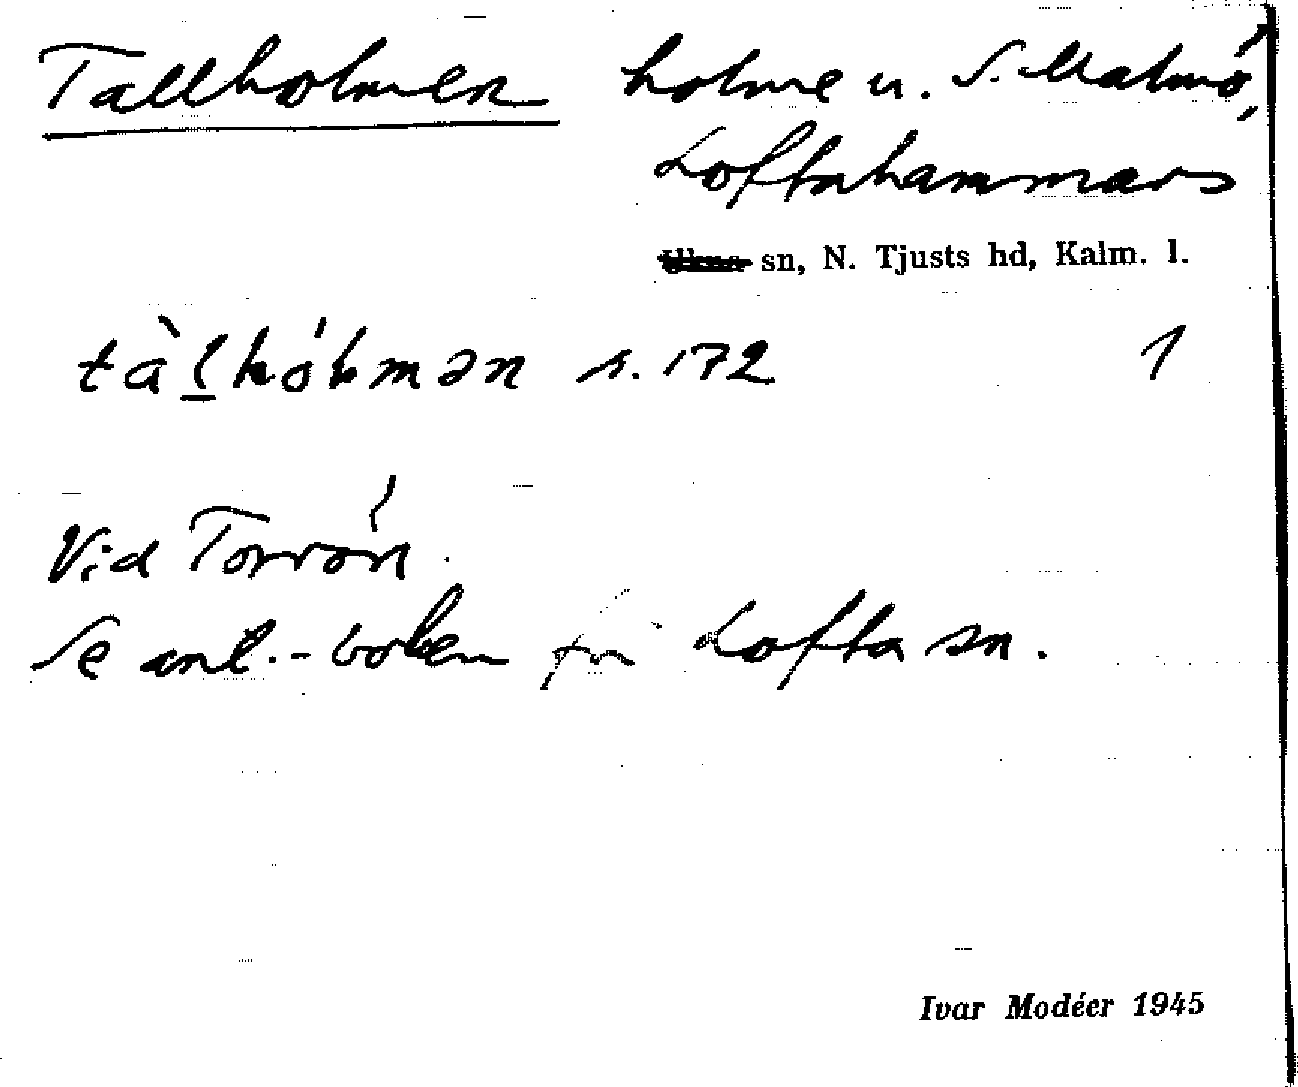 Tallholmen holme u. S. Malmö,
Loftahammars
sn, N. Tjusts hd, Kalm. l.
s. 172 1
Vid Torrön.
Se ant.-boken för Lofta sn.
Ivar Modéer 1945